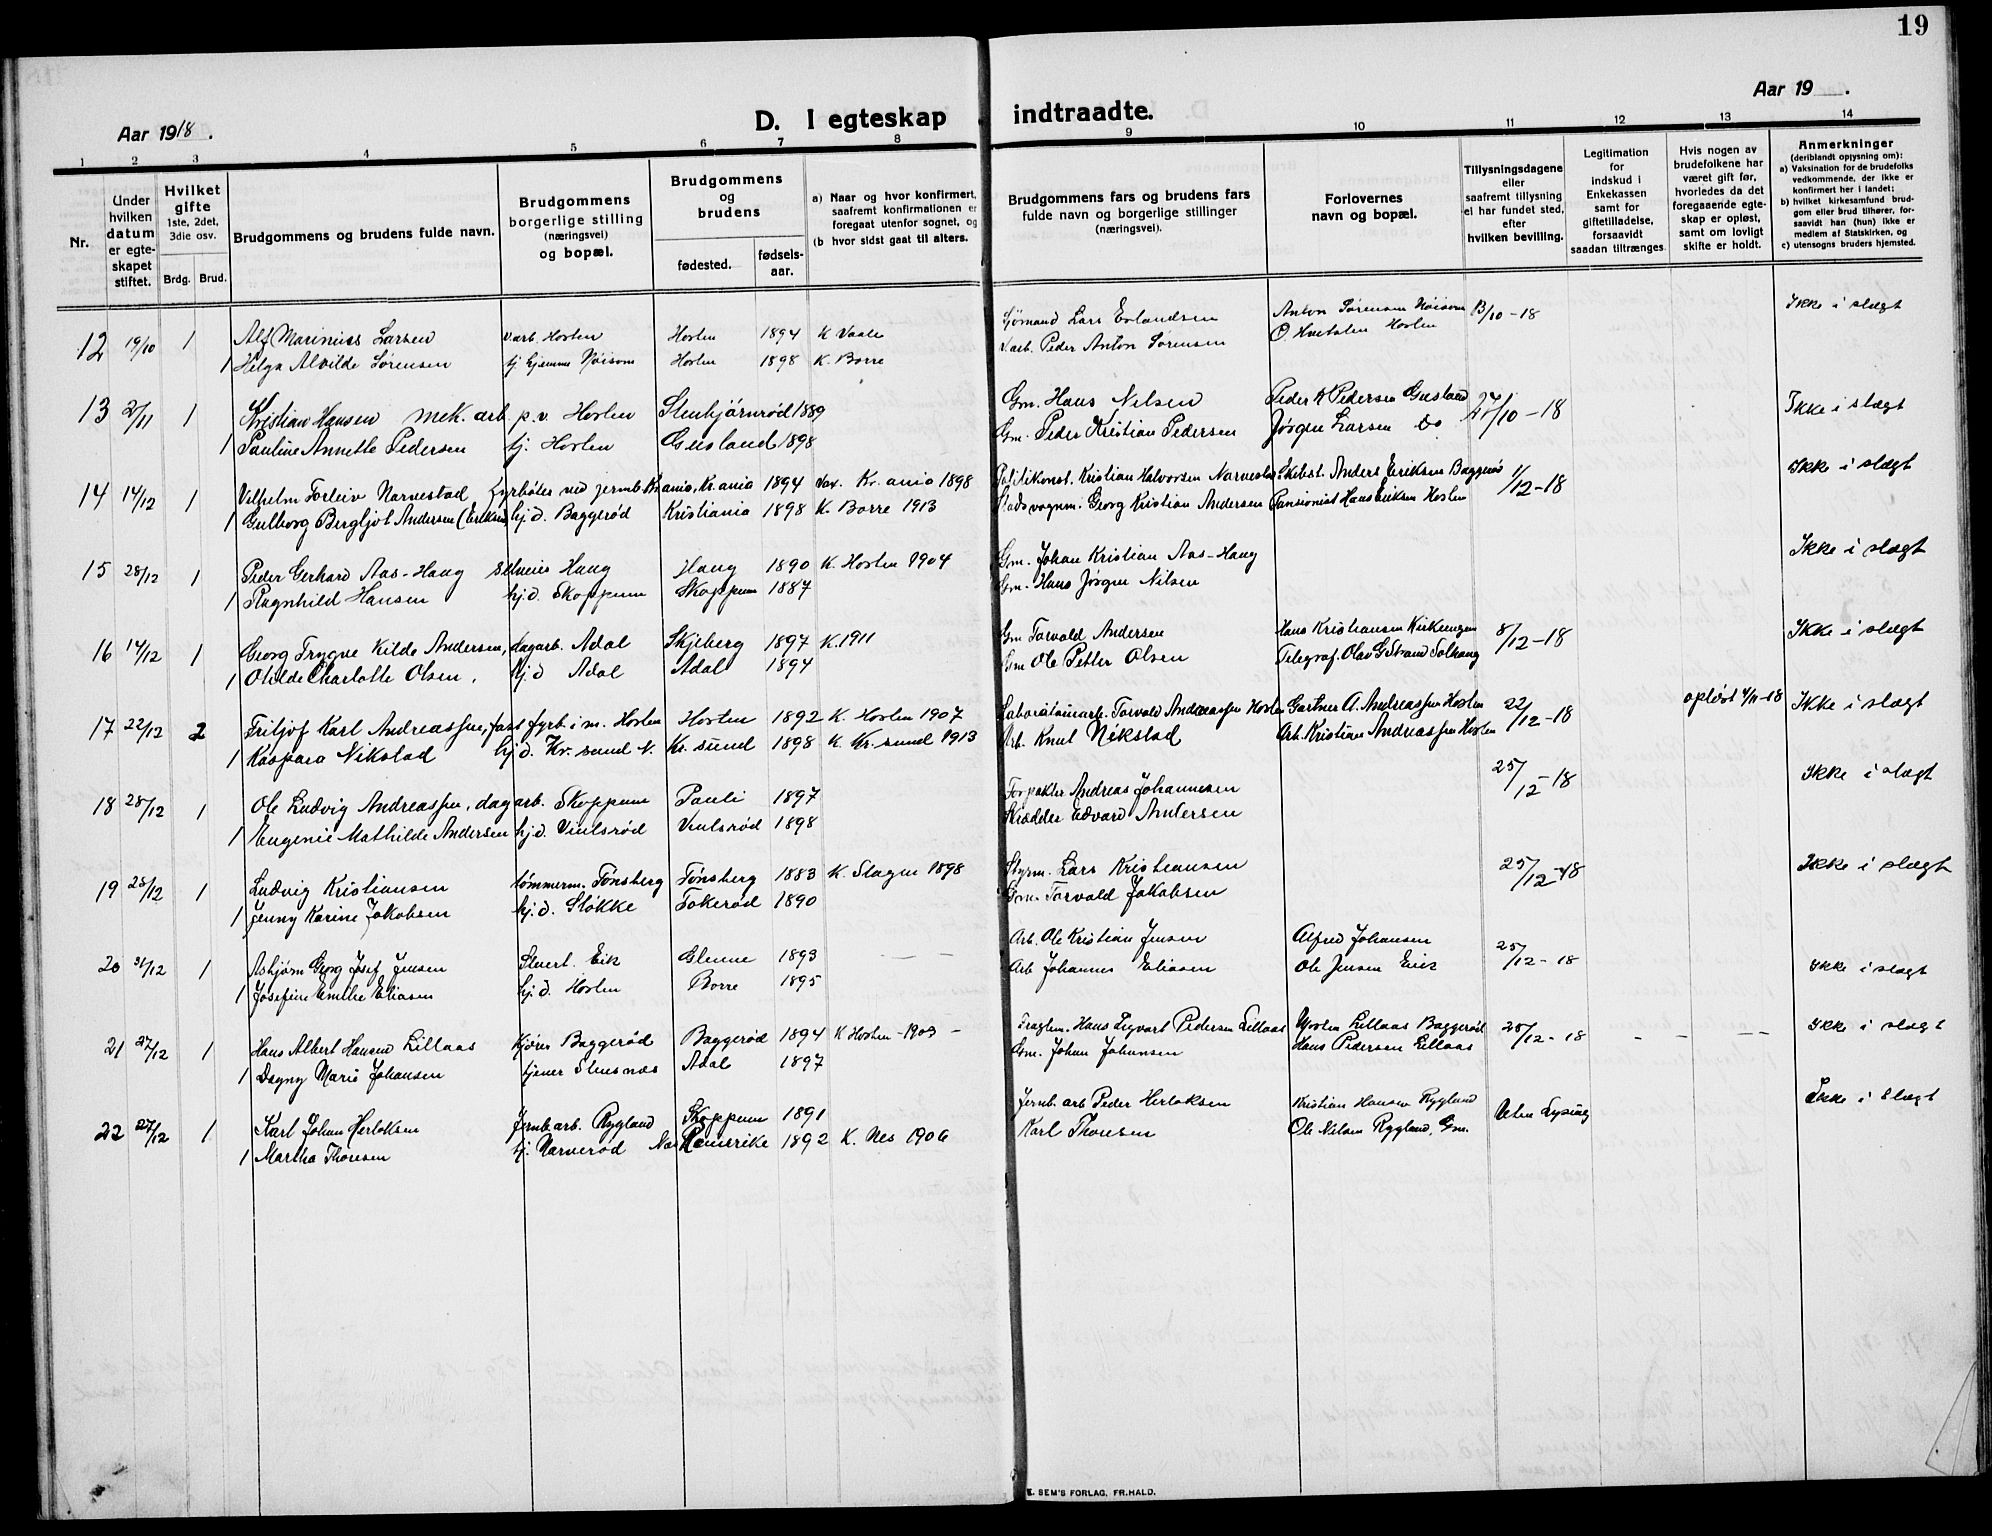 19
Aar 1918.
D. I egteskap indtraadte.
Aar 19 .
1 2 3 4 5 6 7 8 9 10 11 12 13 14
Nr.
Under hvilken datum er egte-skapet stiftet.
Hvilket gifte 1ste, 2det, 3die osv.
Brdg. Brud.
Brudgommens og brudens fulde navn.
Brudgommens borgerlige stilling (næringsvei) og bopæl.
Brudgommens og brudens
fødested. fødsels-aar.
a) Naar og hvor konfirmert, saafremt konfirmationen er foregaat utenfor sognet, og
(b hvor sidst gaat til alters.
Brudgommens fars og brudens fars fulde navn og borgerlige stillinger (næringsvei).
Forlovernes navn og bopæl.
Tillysningsdagene eller saafremt tillysning ei har fundet sted, efter hvilken bevilling.
Legitimation for indskud i Enkekassen samt for giftetilladelse, forsaavidt saadan tiltrænges.
Hvis nogen av brudefolkene har været gift før, hvorledes da det foregaaende egte-skap er opløst, samt om lovligt skifte er holdt.
Anmerkninger (deriblandt opjysning om): a) Vaksination for de brudefolks vedkommende, der ikke er konfirmert her i landet; b) hvilket kirkesamfund brud-gom eller brud tilhører, for-saavidt han (hun) ikke er medlem af Statskirken, og c) utensogns bruders hjemsted.
12 19/10 1 Alf Marinius Larsen Varb. Horten Horten 1894 K Vaale Sjømand Lars Erlandsen Anton Sørensen Nøisom 13/10-18 Ikke i slægt
1 Helga Alvilde Sørensen hj hjemme Nøisom Horten 1898 K. Borre Varb. Peder Anton Sørensen Horten
13 2/11 1 Kristian Hansen mek. arb p.v. Horten Stenbjørnrød 1889 Gm. Hans Nilsen Peder K Pedersen Gusland 27/10-18 Ikke i slægt
1 Pauline Annette Pedersen tj. Horten Gusland 1898 Gm. Peder Kristian Pedersen Jørgen Larsen do
14 14/12 1 Vilhelm Torleiv Narvestad Fyrbøter ved jernb. Kr.ania, Kr.ania 1894 Kr.ania 1898 Politikonst. Kristian Halvorsen Narvestad Skibst. Anders Eriksen Baggerød 1/12-18 Ikke i slægt
1 Gulborg Bergljot Andersen (Eriksen) hj.d. Baggerød Kristiania 1898 K. Borre 1913 Stadsvognm. Georg Kristian Andersen Pensionist Hans Eriksen Horten
15 28/12 1 Peder Gerhard Aas-Haug selveier Haug Haug 1890 K. Horten 1904 Gm. Johan Kristian Aas-Haug Ikke i slægt
1 Ragnhild Hansen hj.d. Skoppum Skoppum 1887 Gm. Hans Jørgen Nilsen
16 14/12 1 Georg Trygve Kilde Andersen, dagarb. Adal Skjeberg 1897 K. 1911 Gm Torvald Andersen Hans Kristiansen Kirkeengen 8/12-18 Ikke i slægt
1 Otilde Charlotte Olsen, hj.d Adal Adal 1894 Gm Ole Petter Olsen Telegraf. Olav G Strand Solhaug
17 22/12 2 Fritjof Karl Andreassen, fast fyrb. i m. Horten Horten 1892 K. Horten 1907 Laboratoriearb. Torvald Andreassen Horten Gartner A. Andreassen Horten 22/12-18 opløst 4/11-18 Ikke i slægt
1 Kaspara Nikstad hj.d. Kr.sund N. Kr.sund 1898 K Kr.sund 1913 Arb. Knut Nikstad Arb. Kristian Andreassen Horten
18 28/12 1 Ole Ludvig Andreassen, dagarb. Skoppum Pauli 1897 Forpakter Andreas Johannesen 25/12-18 Ikke i slægt
1 Eugenie Mathilde Andersen hj.d. Viulsrød Viulsrød 1898 Skrædder Edvard Andersen
19 28/12 1 Ludvig Kristiansen tømmerm. Tønsberg Tønsberg 1883 K. Slagen 1898 Styrm. Lars Kristiansen 25/12-18 Ikke i slægt
1 Jenny Karine Jakobsen hj.d. Sløkke Tokerød 1890 Gm. Torvald Jakobsen
20 31/12 1 Asbjørn Georg Josef Jensen Eik Glenne 1893 Arb. Ole Kristian Jensen Alfred Johansen 25/12-18 Ikke i slægt
1 Josefine Emilie Eliasen hj.d. Horten Borre 1895 Arb Johannes Eliasen Ole Jensen Eik
21 27/12 1 Hans Albert Hansen Lillaas kjører Baggerød Baggerød 1894 K Horten -1909 - Hans Sigvart Pedersen Lillaas Lillaas Baggerød 25/12-18 - - -- Ikke i slægt
1 Dagny Marie Johansen tjener Stensnæs Adal 1897 Gm. Johan Johansen Hans Pedersen Lillaas
22 27/12 1 Karl Johan Herlofsen Jernb.arb. Rygland Skoppum 1891 Jernb. arb Peder Herlofsen Kristian Hansen Rygland Uten Lysing Ikke i Slægt
1 Martha Thoresen tj. Narverød Nes Romerike 1892 K. Nes 1906 Karl Thoresen Ole Nilsen Rygland, Gm.
E. SEM'S FORLAG, FR.HALD.